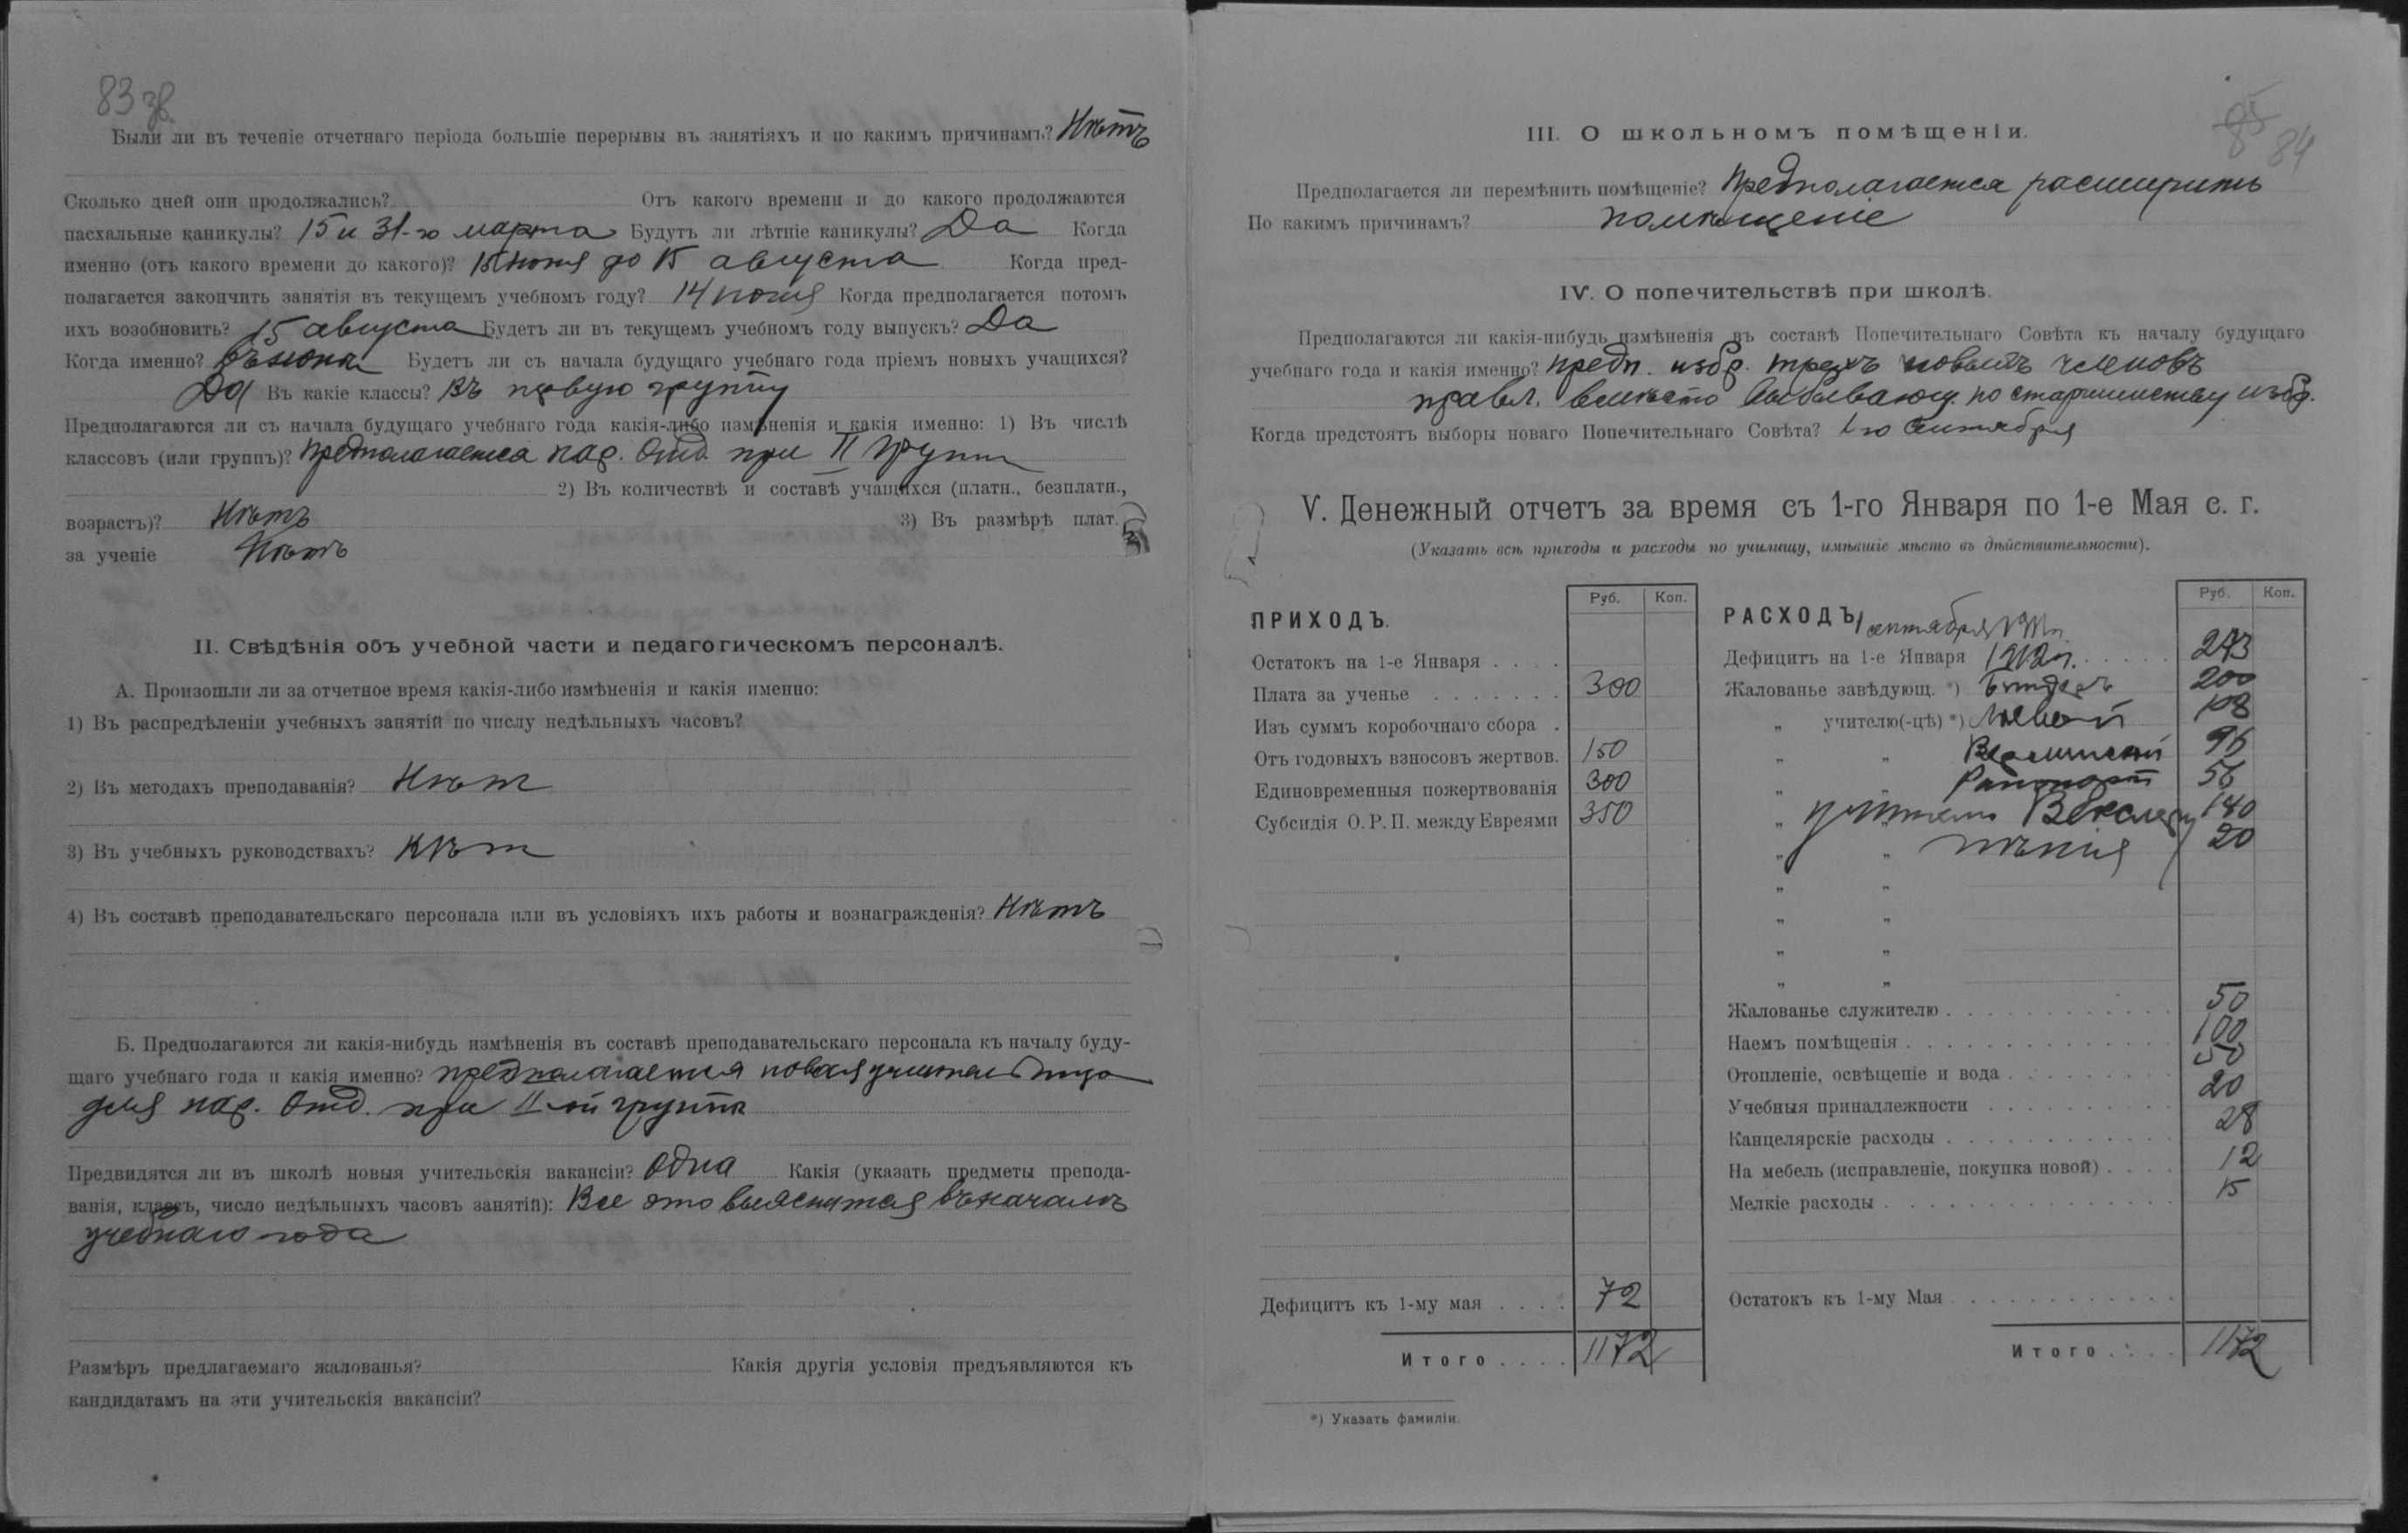 83 зв.
Были ли въ теченіе отчетнаго періода большіе перерывы въ занятіяхъ и по какимъ причинамъ? Нѣтъ
Сколько дней они продолжались? Отъ какого времени и до какого продолжаются
пасхальные каникулы? 15 и 31-го марта Будутъ ли лѣтніе каникулы? Да Когда
именно (отъ какого времени до какого)? 15 іюня до 15 августа Когда пред-
полагается закончить занятія въ текущемъ учебномъ году? 14 іюня Когда предполагается потомъ
ихъ возобновить? 15 августа Будетъ ли въ текущемъ учебномъ году выпускъ? Да
Когда именно? въ іюнѣ Будетъ ли съ начала будущаго учебнаго года пріемъ новыхъ учащихся?
Да Въ какіе классы? Въ первую группу
Предполагаются ли съ начала будущаго учебнаго года какія-либо измѣненія и какія именно: 1) Въ числѣ
классовъ (или группъ)? предполагается пар. Отд. при II группѣ
2) Въ количествѣ и составѣ учащихся (платн., безплатн.,
возрастъ)? Нѣтъ 3) Въ размѣрѣ плат.
за ученіе Нѣтъ
II. Свѣдѣнія объ учебной части и педагогическомъ персоналѣ.
А. Произошли ли за отчетное время какія-либо измѣненія и какія именно:
1) Въ распредѣленіи учебныхъ занятій по числу недѣльныхъ часовъ?
2) Въ методахъ преподаванія? Нѣт
3) Въ учебныхъ руководствахъ? Нѣт
4) Въ составѣ преподавательскаго персонала или въ условіяхъ ихъ работы и вознагражденія? Нѣтъ
Б. Предполагаются ли какія-нибудь измѣненія въ составѣ преподавательскаго персонала къ началу буду-
щаго учебнаго года и какія именно? предполагается новая учительница
для пар. Отд. при II-ой группѣ
Предвидятся ли въ школѣ новыя учительскія вакансіи? Одна Какія (указать предметы препода-
ванія, классъ, число недѣльныхъ часовъ занятій): Все это выяснится въ началѣ
учебнаго года
Размѣръ предлагаемаго жалованья? Какія другія условія предъявляются къ
кандидатамъ на эти учительскія вакансіи?
85 84
III. О школьномъ помѣщеніи.
Предполагается ли перемѣнить помѣщеніе? Предполагается расширить
По какимъ причинамъ? помѣщеніе
IV. О попечительствѣ при школѣ.
Предполагаются ли какія-нибудь измѣненія въ составѣ Попечительнаго Совѣта къ началу будущаго
учебнаго года и какія именно? предп. избр. трехъ новыхъ членовъ
правл. вмѣсто выбывающ. по старшинству избр.
Когда предстоятъ выборы новаго Попечительнаго Совѣта? 1-го Сентября
V. Денежный отчетъ за время съ 1-го Января по 1-е Мая с. г.
(Указать всѣ приходы и расходы по училищу, имѣвшіе мѣсто въ дѣйствительности).
ПРИХОДЪ. Руб. Коп.
Остатокъ на 1-е Января
Плата за ученье 300
Изъ суммъ коробочнаго сбора
Отъ годовыхъ взносовъ жертвов. 150
Единовременныя пожертвованія 300
Субсидія О. Р. П. между Евреями 350
Дефицитъ къ 1-му мая 72
Итого 1172
*) Указать фамиліи.
РАСХОДЪ 1 сентября 1911 г. Руб. Коп.
Дефицитъ на 1-е Января 1912 г. 273
Жалованье завѣдующ. *) 200
„ учителю(-цѣ) *) 108
„ „ 96
„ „ Рапопорт 56
„ учителю Векслеру 140
„ „ пѣнія 20
„ „
„ „
„ „
„ „
Жалованье служителю 50
Наемъ помѣщенія 100
Отопленіе, освѣщеніе и вода 50
Учебныя принадлежности 20
Канцелярскіе расходы 28
На мебель (исправленіе, покупка новой) 12
Мелкіе расходы 15
Остатокъ къ 1-му Мая
Итого 1172